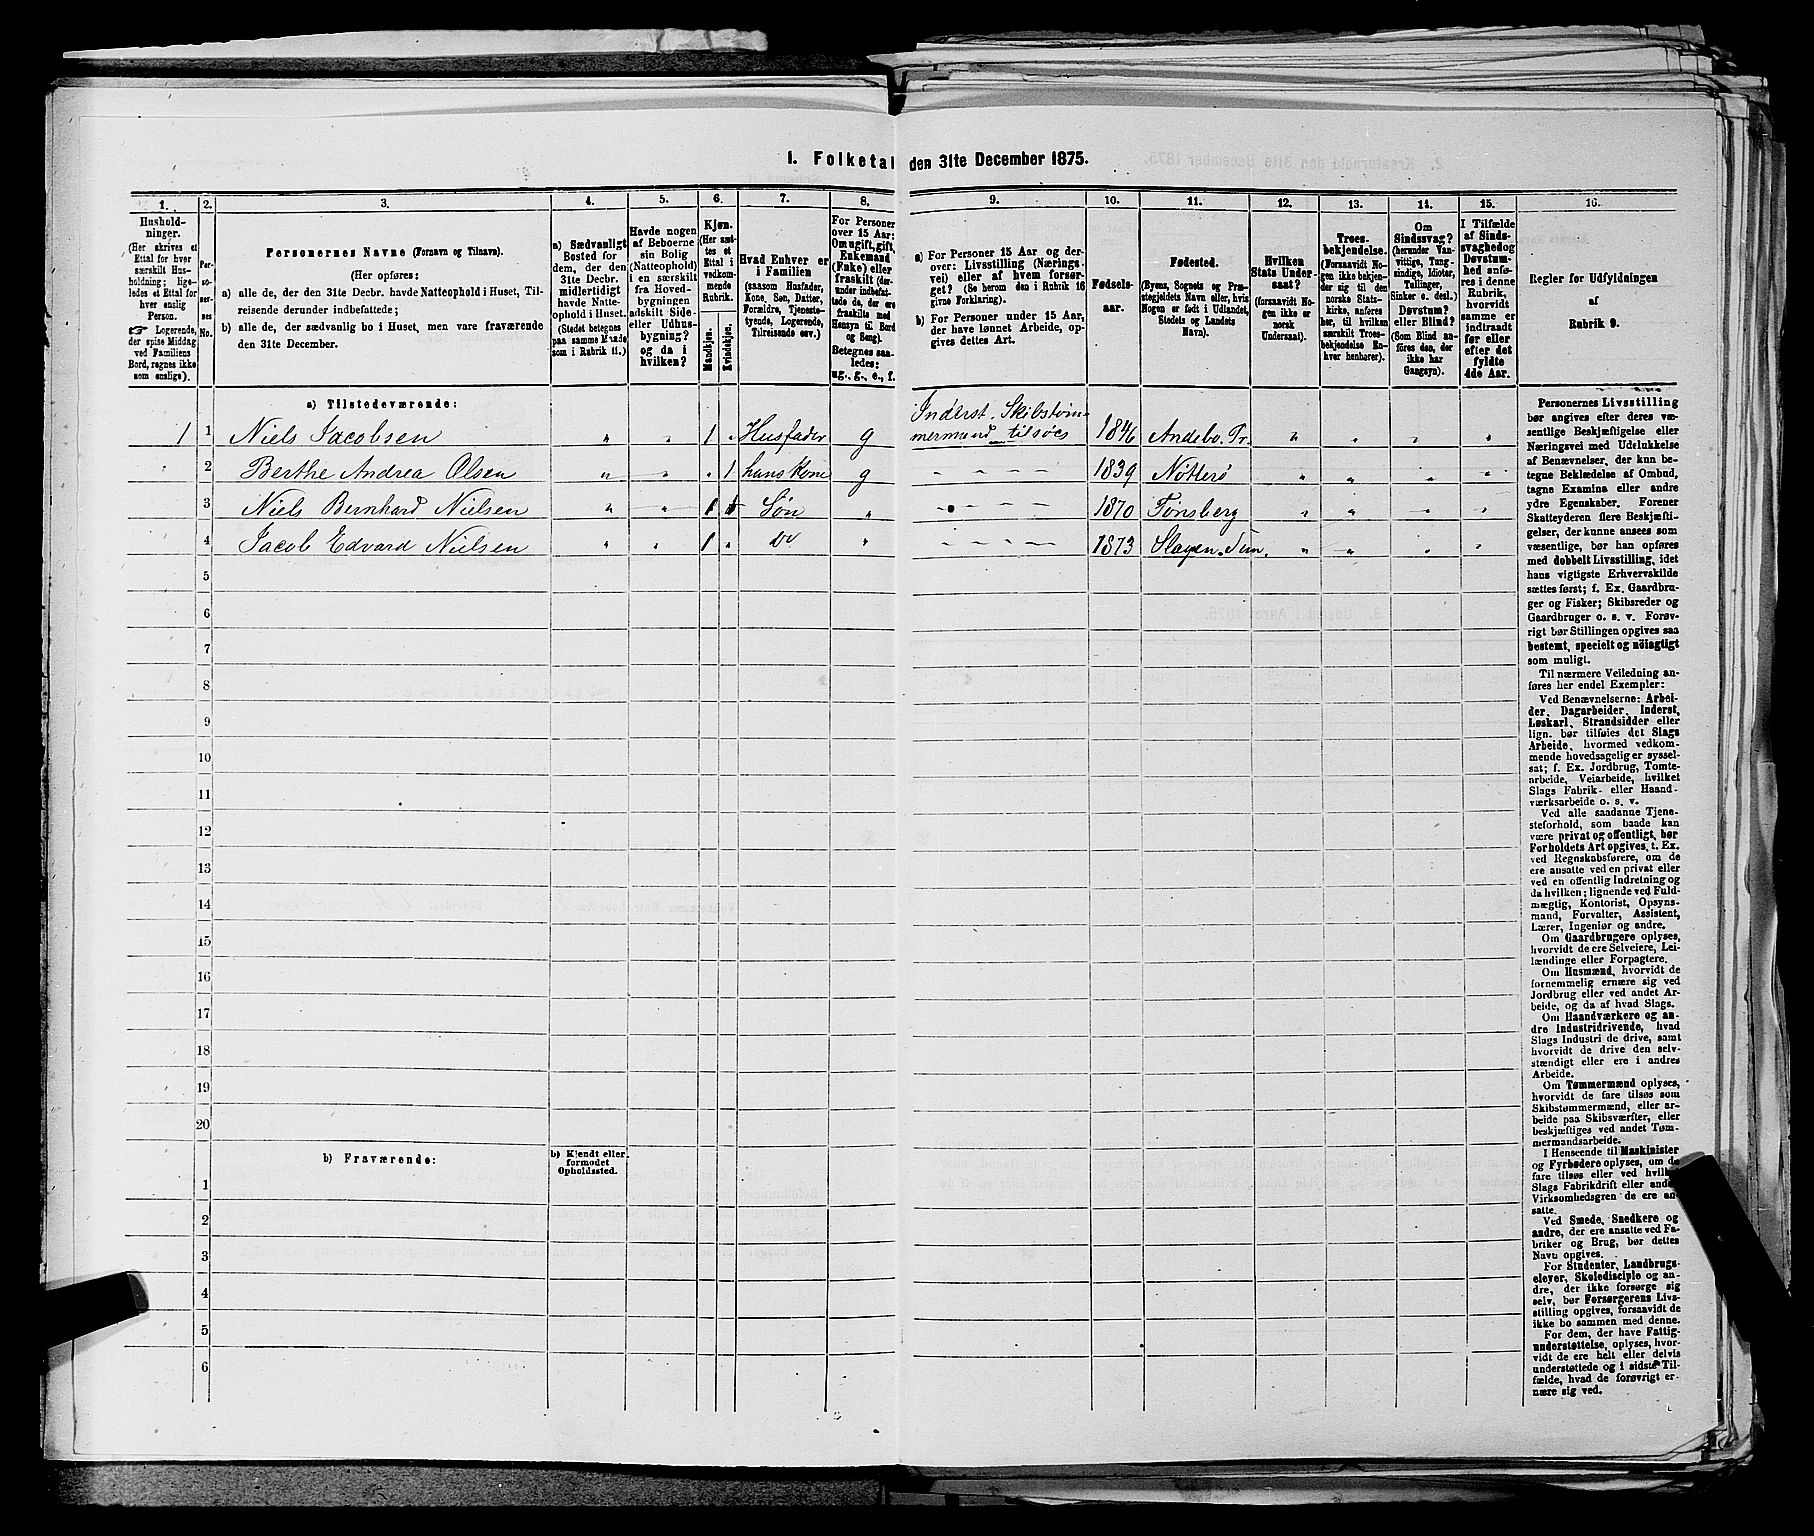 1. Folketal den 31te December 1875.
1. 2. 3. 4. 5. 6. 7. 8. 9. 10. 11. 12. 13. 14. 15. 16.
Hushold-
ninger.
(Her skrives et
Ettal for hver
særskilt Hus-
holdning; lige-
ledes et Ettal for
hver enslig
Person.
☞ Logerende,
der spise Middag
ved Familiens
Bord, regnes ikke
som enslige).
Per-
so-
ner-
nes
No.
Personernes Navne (Fornavn og Tilnavn).
(Her opføres:
a) alle de, der den 31te Decbr. havde Natteophold i Huset, Til-
reisende derunder indbefattede;
b) alle de, der sædvanlig bo i Huset, men vare fraværende
den 31te December.
a) Sædvanligt
Bosted for
dem, der den
31te Decbr.
midlertidigt
havde Natte-
ophold i Huset.
(Stedet betegnes
paa samme Maade
som i Rubrik 11.)
Havde nogen
af Beboerne
sin Bolig
(Natteophold)
i en særskilt
fra Hoved-
bygningen
adskilt Side-
eller Udhus-
bygning?
og da i
hvilken?
Kjøn.
(Her sæt-
tes et
Ettal i
vedkom-
mende
Rubrik.
Mandkjøn.
Kvindekjøn.
Hvad Enhver er
i Familien
(saasom Husfader,
Kone, Søn, Datter,
Forældre, Tjeneste-
tyende, Logerende,
Tilreisende osv.)
For Personer
over 15 Aar:
Om ugift, gift,
Enkemand
(Enke) eller
fraskilt (der-
under indbefat-
tede de, der ere
fraskilte med
Hensyn til Bord
og Seng).
Betegnes saa-
ledes:
ug., g., e., f.
a) For Personer 15 Aar og der-
over: Livsstilling (Nærings-
vei) eller af hvem forsør-
get? (Se herom den i Rubrik 16
givne Forklaring).
b) For Personer under 15 Aar,
der have lønnet Arbeide, op-
gives dettes Art.
Fødsels-
aar.
Fødested.
(Byens, Sognets og Præ-
stegjeldets Navn eller, hvis
Nogen er født i Udlandet,
Stedets og Landets
Navn).
Hvilken
Stats Under-
saat?
(forsaavidt No-
gen ikke er
norsk
Undersaat).
Troes-
bekjendelse.
(Forsaavidt No-
gen ikke bekjen-
der sig til den
norske Stats-
kirke, anføres
her, til hvilken
særskilt Troes-
bekjendelse En-
hver henhører).
Om
Sindssvag?
(herunder Van-
vittige, Tung-
sindige, Idioter,
Tullinger,
Sinker o. desl.)
Døvstum?
eller Blind?
(Som Blind an-
føres den, der
ikke har
Gangsyn).
I Tilfælde
af Sinds-
svaghed og
Døvstum-
hed anfø-
res i denne
Rubrik,
hvorvidt
samme er
indtraadt
før eller
efter det
fyldte
4de Aar.
Regler for Udfyldningen
af
Rubrik 9.
a) Tilstedeværende:
1 1 Niels Jacobsen " " 1 " Husfader g Inderst. Skibstøm-
mermand tilsøes 1846 Andebo. Pr. " " " "
2 Berthe Andrea Olsen " " " 1 hans Kone g " " " " 1839 Nötterö " " " "
3 Niels Bernhard Nielsen " " 1 Søn " " " " " 1870 Tønsberg " " " "
4 Jacob Edvard Nielsen " " 1 " Do " " " " " 1873 Slagen " " " "
5
6
7
8
9
10
11
12
13
14
15
16
17
18
19
20
b) Fraværende:
b) Kjendt eller
formodet
Opholdssted.
1
2
3
4
5
6
Personernes Livsstilling
bør angives efter deres væ-
sentlige Beskjæftigelse eller
Næringsvei med Udelukkelse
af Benævnelser, der kun be-
tegne Beklædelse af Ombud,
tagne Examina eller andre
ydre Egenskaber. Forener
Skatteyderen flere Beskjæfti-
gelser, der kunne ansees som
væsentlige, bør han opføres
med dobbelt Livsstilling, idet
hans vigtigste Erhvervskilde
sættes først; f. Ex. Gaardbru-
ger og Fisker; Skibsreder og
Gaardbruger o. s. v. Forøv-
rigt bør Stillingen opgives saa
bestemt, specielt og nöiagtigt
som muligt.
Til nærmere Veiledning an-
føres her endel Exempler:
Ved Benævnelserne: Arbei-
der, Dagarbeider, Inderst,
Løskarl, Strandsidder eller
lign. bør tilføies det Slags
Arbeide, hvormed vedkom-
mende hovedsagelig er syssel-
sat; f. Ex. Jordbrug, Tomte-
arbeide, Veiarbeide, hvilket
Slags Fabrik- eller Haand-
værksarbeide o. s. v.
Ved alle saadanne Tjene-
steforhold, som baade kan
være privat og offentligt, bør
Forholdets Art opgives, t. Ex.
ved Regnskabsførere, om de
ere ansatte ved en privat eller
ved en offentlig Indretning og
da hvilken; lignende ved Fuld-
mægtig, Kontorist, Opsyns-
mand, Forvalter, Assistent,
Lærer, Ingeniør og andre.
Om Gaardbrugere oplyses,
hvorvidt de ere Selveiere, Lei-
lændinge eller Forpagtere.
Om Husmænd, hvorvidt de
fornemmelig ernære sig ved
Jordbrug eller ved andet Ar-
beide, og da af hvad Slags.
Om Haandværkere og an-
dre Industridrivende, hvad
Slags Industri de drive, samt
hvorvidt de drive den selv-
stændigt eller ere i andres
Arbeide.
Om Tømmermænd oplyses,
hvorvidt de fare tilsøs som
Skibstømmermænd, eller ar-
beide paa Skibsværfter, eller
beskjæftiges ved andet Tøm-
mermandsarbeide.
I Henseende til Maskinister
og Fyrbødere oplyses, om de
fare tilsøs eller ved hvilket
Slags Fabrikdrift eller anden
Virksomhedsgren de ere an-
satte.
Ved Smede, Snedkere og
andre, der ere ansatte ved Fa-
briker og Brug, bør dettes
Navn opgives.
For Studenter, Landbrugs-
elever, Skoledisciple og an-
dre, der ikke forsørge sig
selv, bør Forsørgerens Livs-
stilling opgives, forsaavidt de
ikke bo sammen med denne.
For dem, der have Fattig-
understøttelse, oplyses, hvor-
vidt de ere helt eller delvis
understøttede og i sidste Til-
fælde, hvad de forøvrigt er-
nære sig ved.